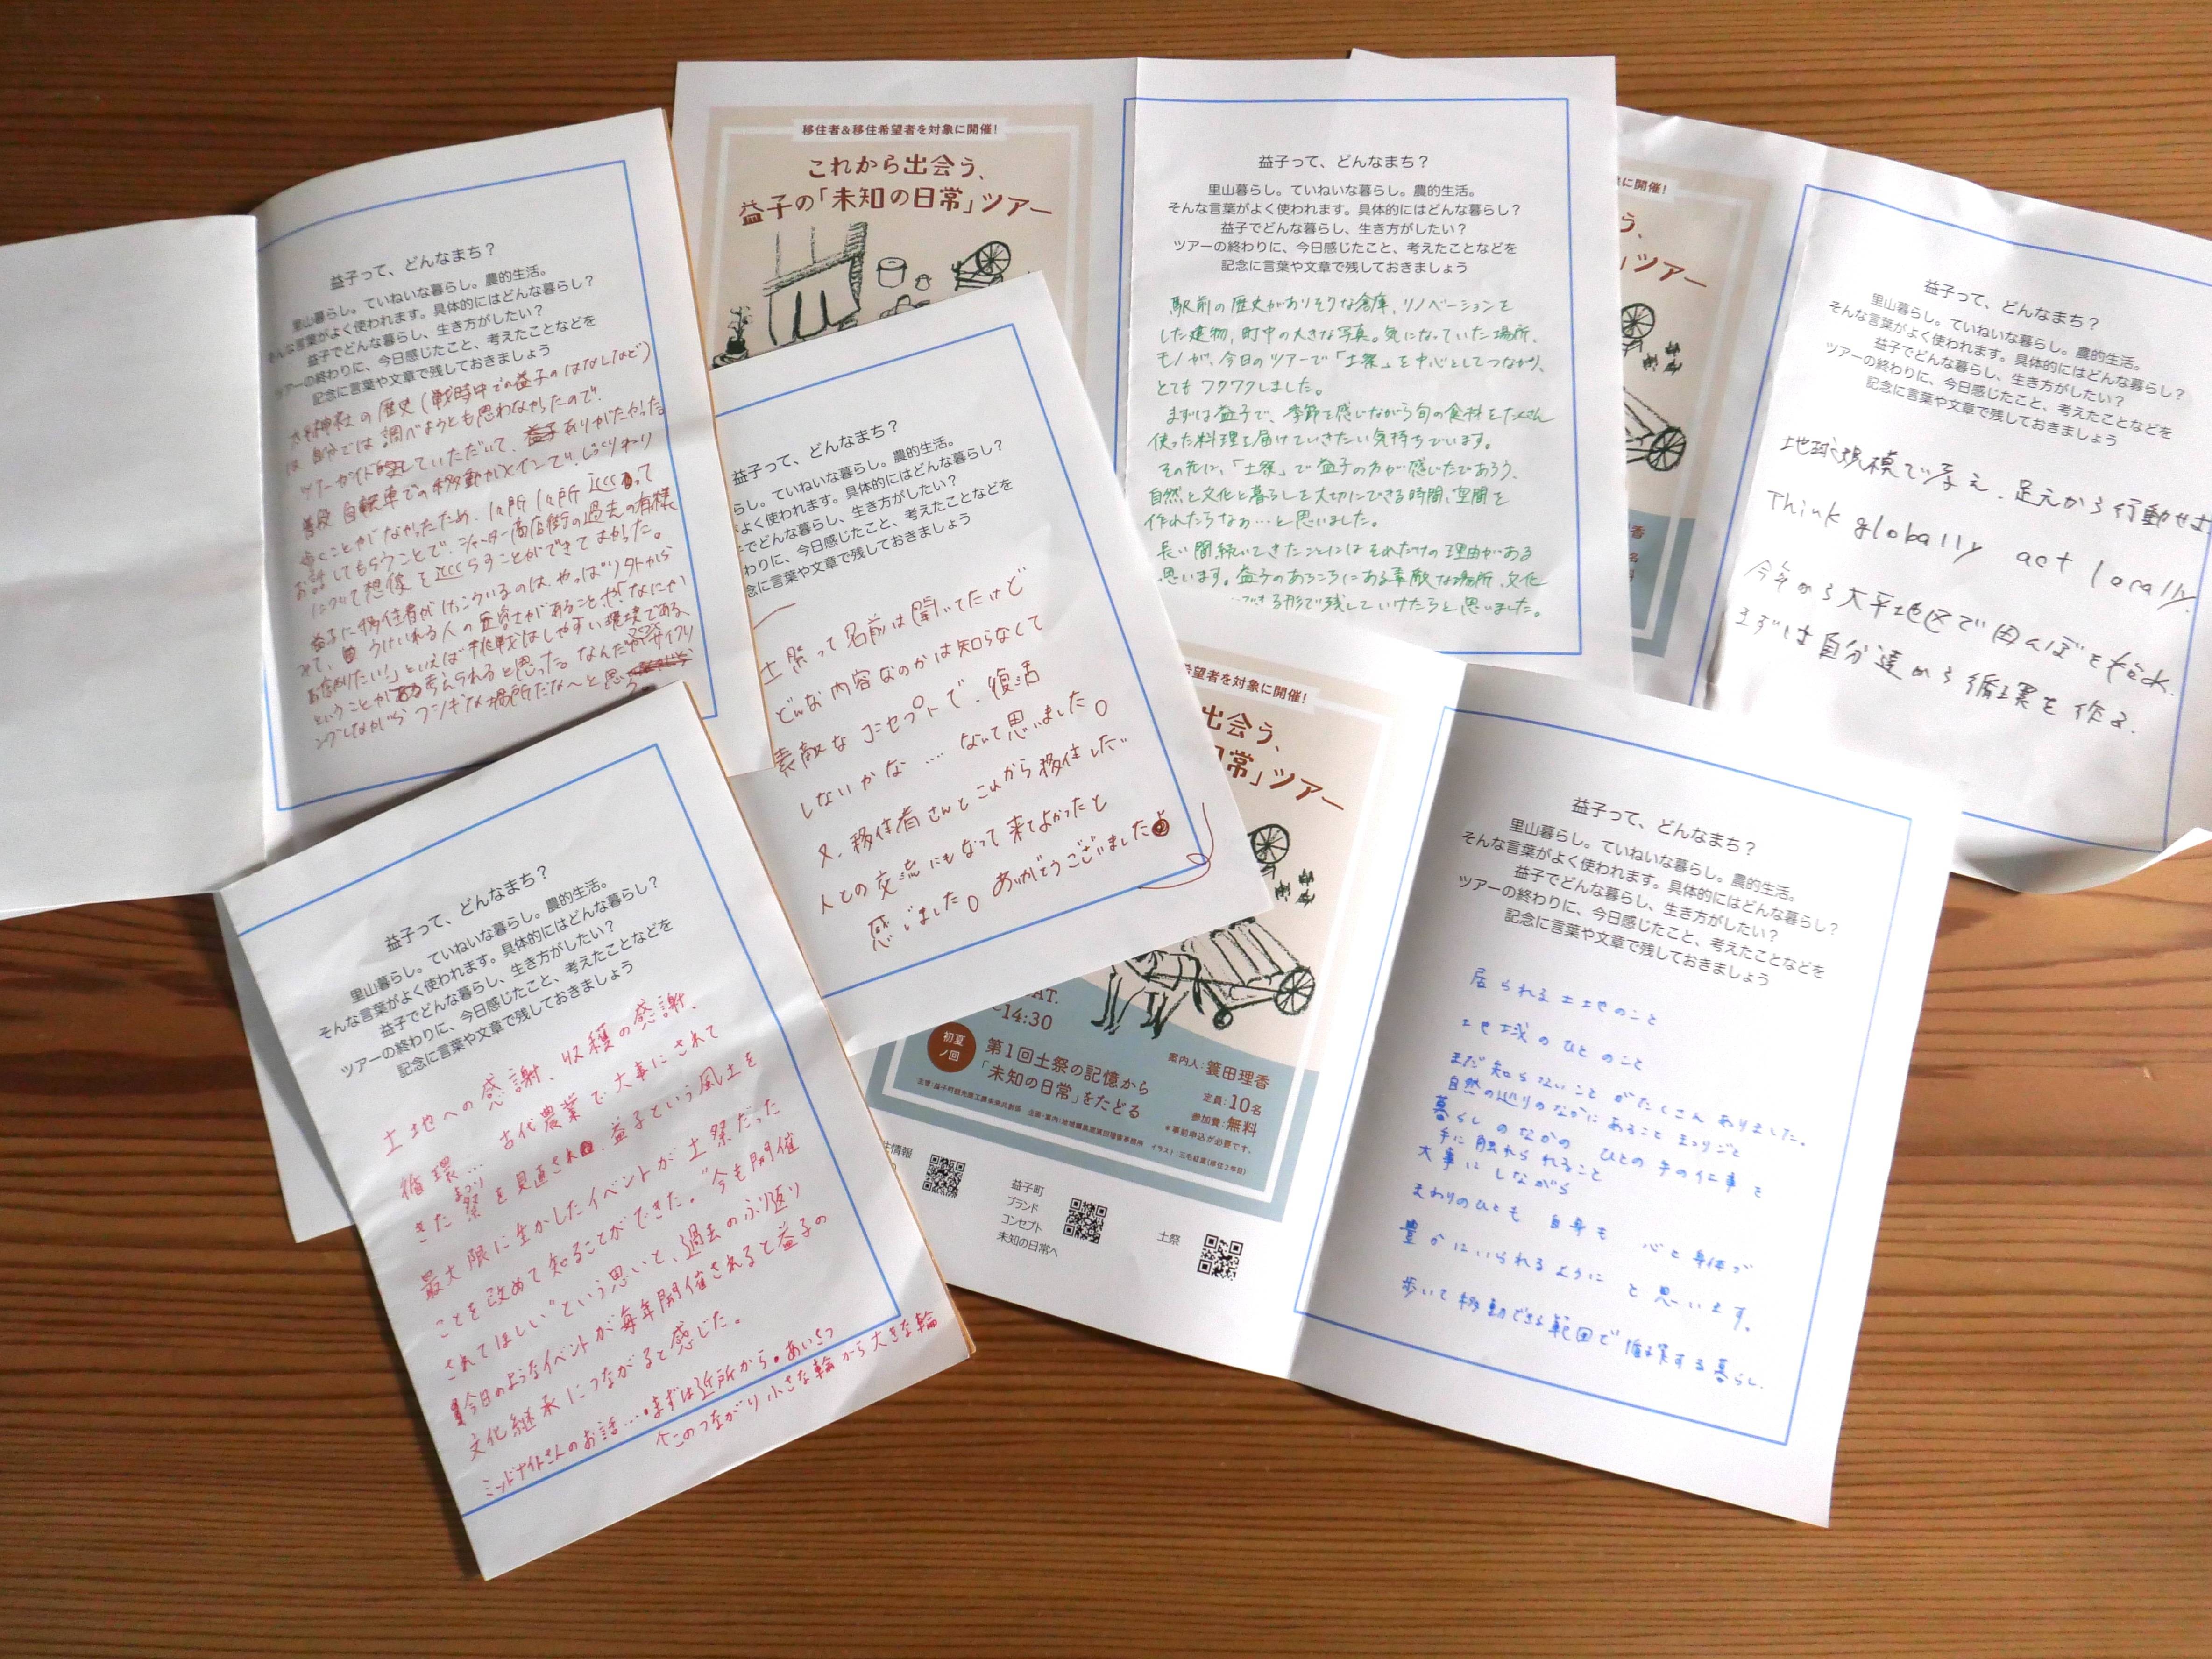 益子って、どんなまち？
里山暮らし。ていねいな暮らし。農的生活。
そんな言葉がよく使われます。具体的にはどんな暮らし？
益子でどんな暮らし、生き方がしたい？
ツアーの終わりに、今日感じたこと、考えたことなどを
記念に言葉や文章で残しておきましょう
神社の歴史(戦時中での益子のはなしなど)
は自分では調べようとも思わなかったので、
ツアーガイドしていただいて、ありがたかった。
普段自転車での移動がメインで、じっくりねり
歩くことがなかったため、1ヶ所1ヶ所
お話してもらうことで、シャッター商店街の過去の有様
について想像を らすことができてよかった。
益子に移住者がけっこういるのは、やっぱり外から
うけいれる人の 容さがあること、 なにか
お始めたい!」といえば挑戦はしやすい環境である、
ということが 考えられると思った。なんだか サイクリ
ングしながら フシギな場所だな〜と思う
移住者＆移住希望者を対象に開催！
これから出会う、
益子の「未知の日常」ツアー
益子って、どんなまち？
里山暮らし。ていねいな暮らし。農的生活。
そんな言葉がよく使われます。具体的にはどんな暮らし？
益子でどんな暮らし、生き方がしたい？
ツアーの終わりに、今日感じたこと、考えたことなどを
記念に言葉や文章で残しておきましょう
駅前の歴史がありそうな倉庫、リノベーションを
した建物、町中の大きな写真。気になっていた場所、
モノが、今日のツアーで「土祭」を中心としてつながり、
とてもワクワクしました。
まずは益子で、季節を感じながら旬の食材をたくさん
使った料理を届けていきたい気持ちでいます。
その先に、「土祭」で益子の方が感じたであろう、
自然と文化と暮らしを大切にできる時間、空間を
作れたらなぁ…と思いました。
長い間続いてきたことにはそれだけの理由がある
思います。益子のあちこちにある素敵な場所、文化
できる形で残していけたらと思いました。
に開催！
う、
」ツアー
益子って、どんなまち？
里山暮らし。ていねいな暮らし。農的生活。
そんな言葉がよく使われます。具体的にはどんな暮らし？
益子でどんな暮らし、生き方がしたい？
ツアーの終わりに、今日感じたこと、考えたことなどを
記念に言葉や文章で残しておきましょう
地球規模で考え、足元から行動せよ
Think globally act locally.
今年から大平地区で田んぼを
まずは自分達から循環を作る.
益子って、どんなまち？
らし。ていねいな暮らし。農的生活。
よく使われます。具体的にはどんな暮らし？
でどんな暮らし、生き方がしたい？
わりに、今日感じたこと、考えたことなどを
念に言葉や文章で残しておきましょう
土祭って名前は聞いてたけど
どんな内容なのかは知らなくて
素敵なコンセプトで、復活
しないかな….なんて思いました。
又、移住者さんとこれから移住したい
人との交流にもなって来てよかったと
感じました。ありがとうございました
希望者を対象に開催！
出会う、
常」ツアー
AT.
～14:30
初夏
ノ回
第1回土祭の記憶から
「未知の日常」をたどる
案内人：簑田理香
定員：10名
参加費：無料
＊事前申込が必要です。
イラスト：三毛紅葉（移住2年目）
住情報
益子町
ブランド
コンセプト
未知の日常へ
土祭
益子って、どんなまち？
里山暮らし。ていねいな暮らし。農的生活。
そんな言葉がよく使われます。具体的にはどんな暮らし？
益子でどんな暮らし、生き方がしたい？
ツアーの終わりに、今日感じたこと、考えたことなどを
記念に言葉や文章で残しておきましょう
居られる土地のこと
地域のひとのこと
まだ知らないことがたくさんありました。
自然の巡りのなかにあること まつりごと
暮らしのなかの ひとの手の仕事を
手に触れられること
大事にしながら
まわりのひとも 自身も 心と身体が
豊かにいられるように と思います。
歩いて移動できる範囲で循環する暮らし.
益子って、どんなまち？
里山暮らし。ていねいな暮らし。農的生活。
そんな言葉がよく使われます。具体的にはどんな暮らし？
益子でどんな暮らし、生き方がしたい？
ツアーの終わりに、今日感じたこと、考えたことなどを
記念に言葉や文章で残しておきましょう
土地への感謝、収穫の感謝、
循環… 古代農業で大事にされて
きた祭を見直され、益子という風土を
まつり
最大限に生かしたイベントが土祭だった
ことを改めて知ることができた。"今も開催
されてほしい"という思いと、過去のふり返り
今日のようなイベントが毎年開催されると益子の
文化継承につながると感じた。
ミッドナイトさんのお話…まずは近所から。あいさつ
このつながり 小さな輪から大きな輪